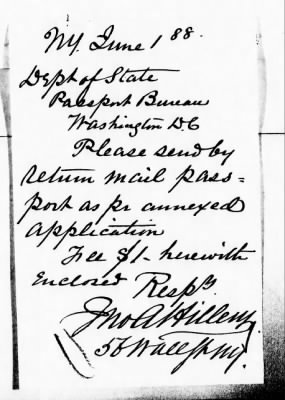 NY. June 1 88.
Dept of State
Passport Bureau
Washington D.C
Please send by
return mail pass=
port as pr annexed
application
Fee $1- herewith
Enclosed Respy.
Jno A Hillery
56 Wall St NY.